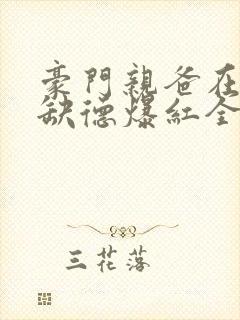 豪門親爸在
缺德爆紅全
三花落